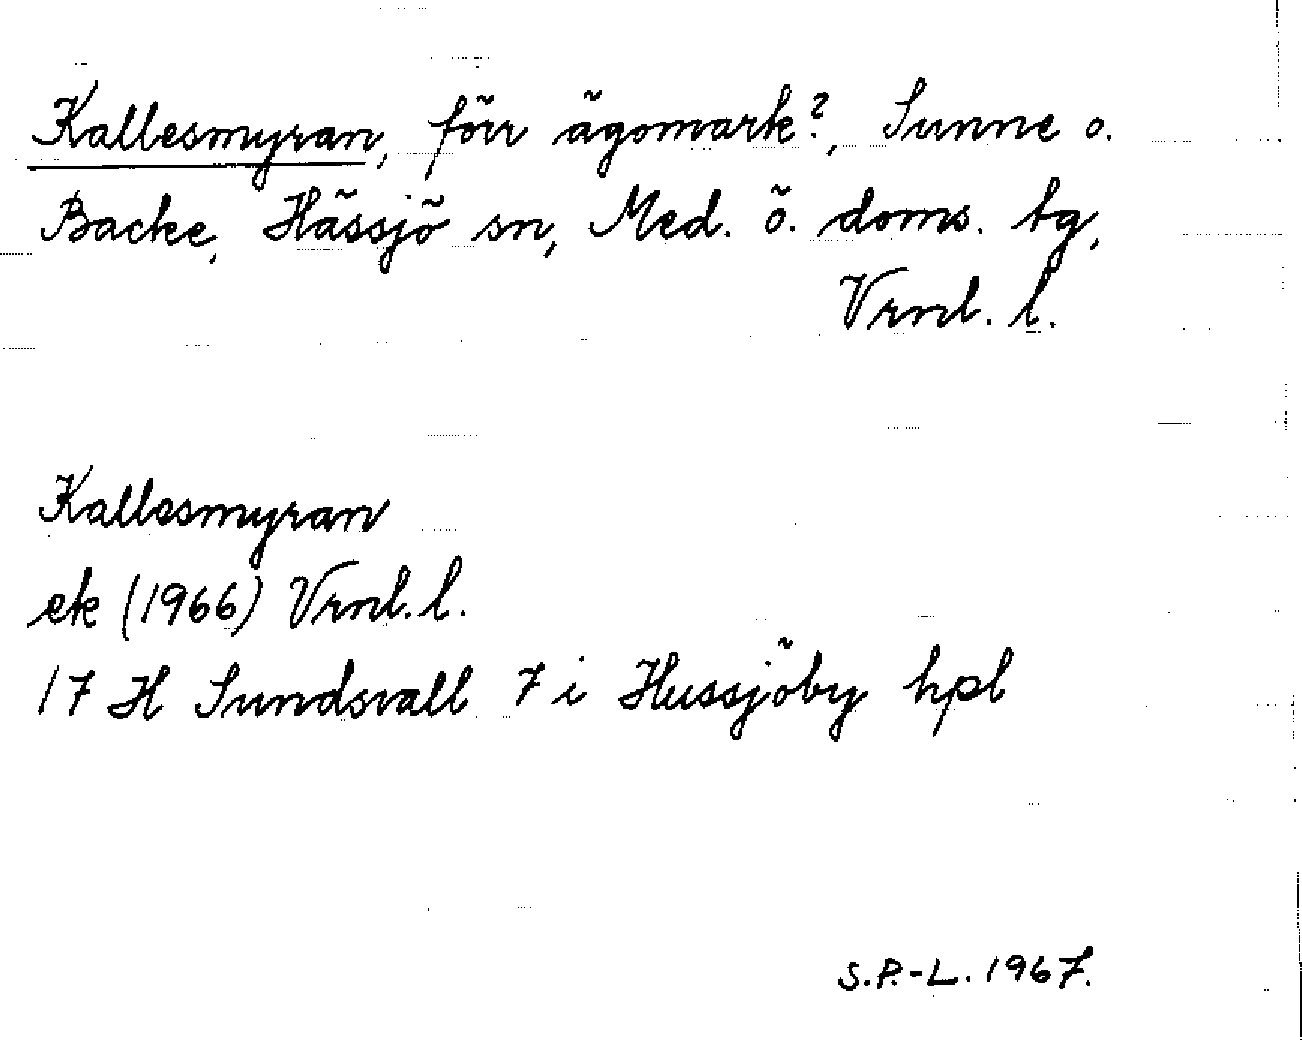 Kallesmyran, förr ägomark?, Sunne o.
Backe, Hässjö sn, Med. ö. doms. tg,
Vrnl. l.
Kallesmyran
ek (1966) Vrnl. l.
17 H Sundsvall 7 i Hussjöby hpl
S.P.-L. 1967.